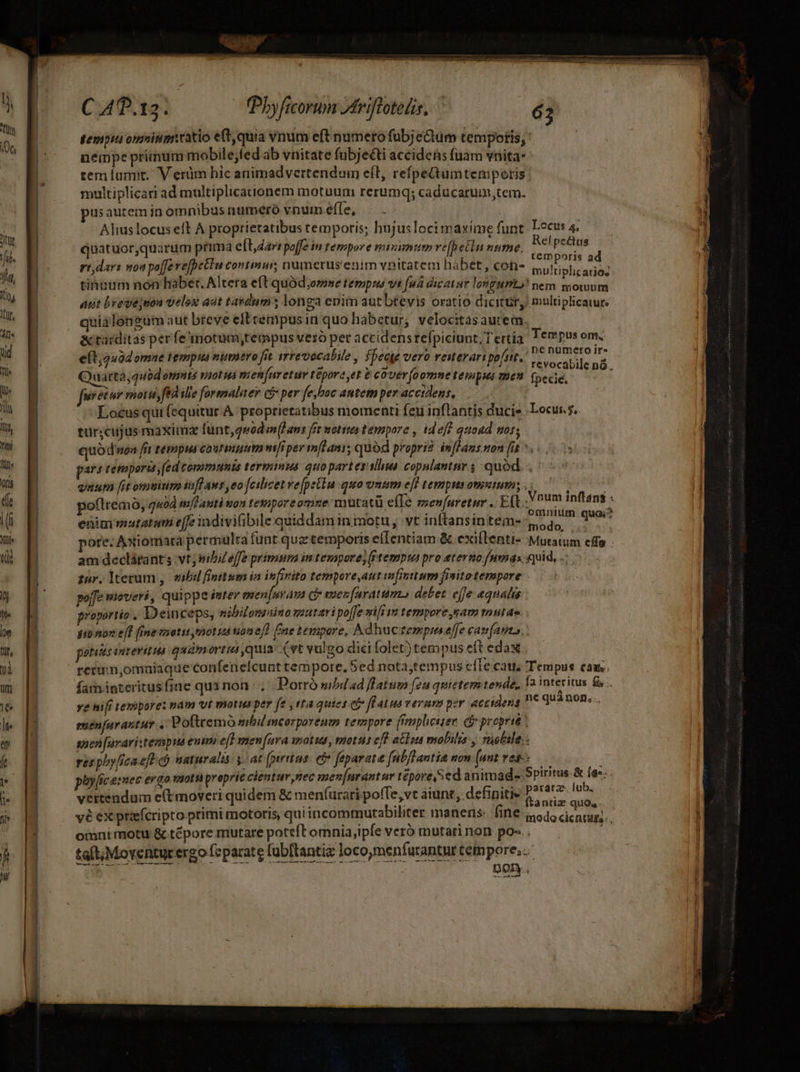 CAP. 13. Physicorum Aristotelis, 63
tempus omnium ratio est, quia vnum est numero subiectum temporis,
nempe primum mobile, sed ab vnitate subiecti accidens suam vnita-
tem sumit. Verùm hic animaduertendum est, respectum temporis
multiplicari ad multiplicationem motuum rerumq; caducarum, tem-
pus autem in omnibus numerò vnum esse,
Alius locus est A proprietatibus temporis; hujus loci maxime sunt
quatuor, quarum prima est, dari posse in tempore minimum respectu nume-
ri, dari non posse respectu continui, numerus enim vnitatem habet, con-
tinuum non habet. Altera est quòd, omne tempus vt suâ dicatur longum,
aut breve, non velox aut tardum; longa enim aut brevis oratio dicitur,
quia longum aut breve est tempus in quo habetur, velocitas autem
& tarditas per se motum, tempus verò per accidens respiciunt, Tertia
est, quòd omne tempus numero sit irrevocabile, specie vero reiterari possit.
Quarta, quòd omnis motus mensuretur tépore, et è coversoomne tempus men
suretur motu, sed ille formaliter & per se, hoc autem per accidens,
Locus qui sequitur A proprietatibus momenti seu instantis duci-
tur; cujus maximæ sunt, quòd instans sit notius tempore, id est quoad nos;
quòd non sit tempus continuum nisi per instans; quòd propriè instans non sit
pars temporis, sed communis terminus quo partes illius copulantur; quòd
vnum sit omnium instans, eo scilicet respectu quo vnum est tempus omnium;
postremò, quòd instanti non tempore omne mutatū esse mensuretur. Est
enim mutatum esse indivisibile quiddam in motu, vt instans in tem-
pore. Axiomata permulta sunt quæ temporis essentiam & existenti-
am declarant; vt, nihil esse primum in tempore, si tempus pro æterno suma-
tur. Iterum, nihil finitum in infinito tempore, aut infinitum finito tempore
posse moveri, quippe inter mensuram & mensuratum debet esse æqualis
proportio. Deinceps, nihil omnino mutari posse nisi in tempore, nam muta-
tio non est sine motu, motus non est sine tempore, Adhuc tempus esse causam
potiùs interitus quàm ortus, quia (vt vulgo dici solet) tempus est edax
rerum, omniaque confenescunt tempore. Sed nota, tempus esse cau-
sam interitus sine qua non. Porrò nihil ad statum seu quietem tende-
re nisi tempore: nam vt motus per se, ita quies & status rerum per accidens
mensurantur. Postremò nihil incorporeum tempore simpliciter & propriè
mensurari; tempus enim est mensura motus, motus est actus mobilis, mobile
res physica est & naturalis, at spiritus & separatæ substantiæ non sunt res
physicæ: nec ergo motu proprie cientur, nec mensurantur tépore, Sed animad-
vertendum est moveri quidem & mensurari posse, vt aiunt, definiti-
vè ex præscripto primi motoris, qui incommutabiliter manens sine
omni motu & tépore mutare potest omnia, ipse verò mutari non po-
test; Moventur ergo separatæ substantiæ loco, mensurantur tempore,
non
Locus 4.
Respectus
temporis ad
multiplicatio-
nem motuum
multiplicatur.
Tempus om-
ne numero ir-
revocabile nō
specie.
Locus 5.
Vnum instans
omnium quo-
modo,
Mutatum esse
quid,
Tempus cau-
sa interitus si-
ne quâ non.
Spiritus & se-
paratæ sub-
stantiæ quo-
modo cientur.